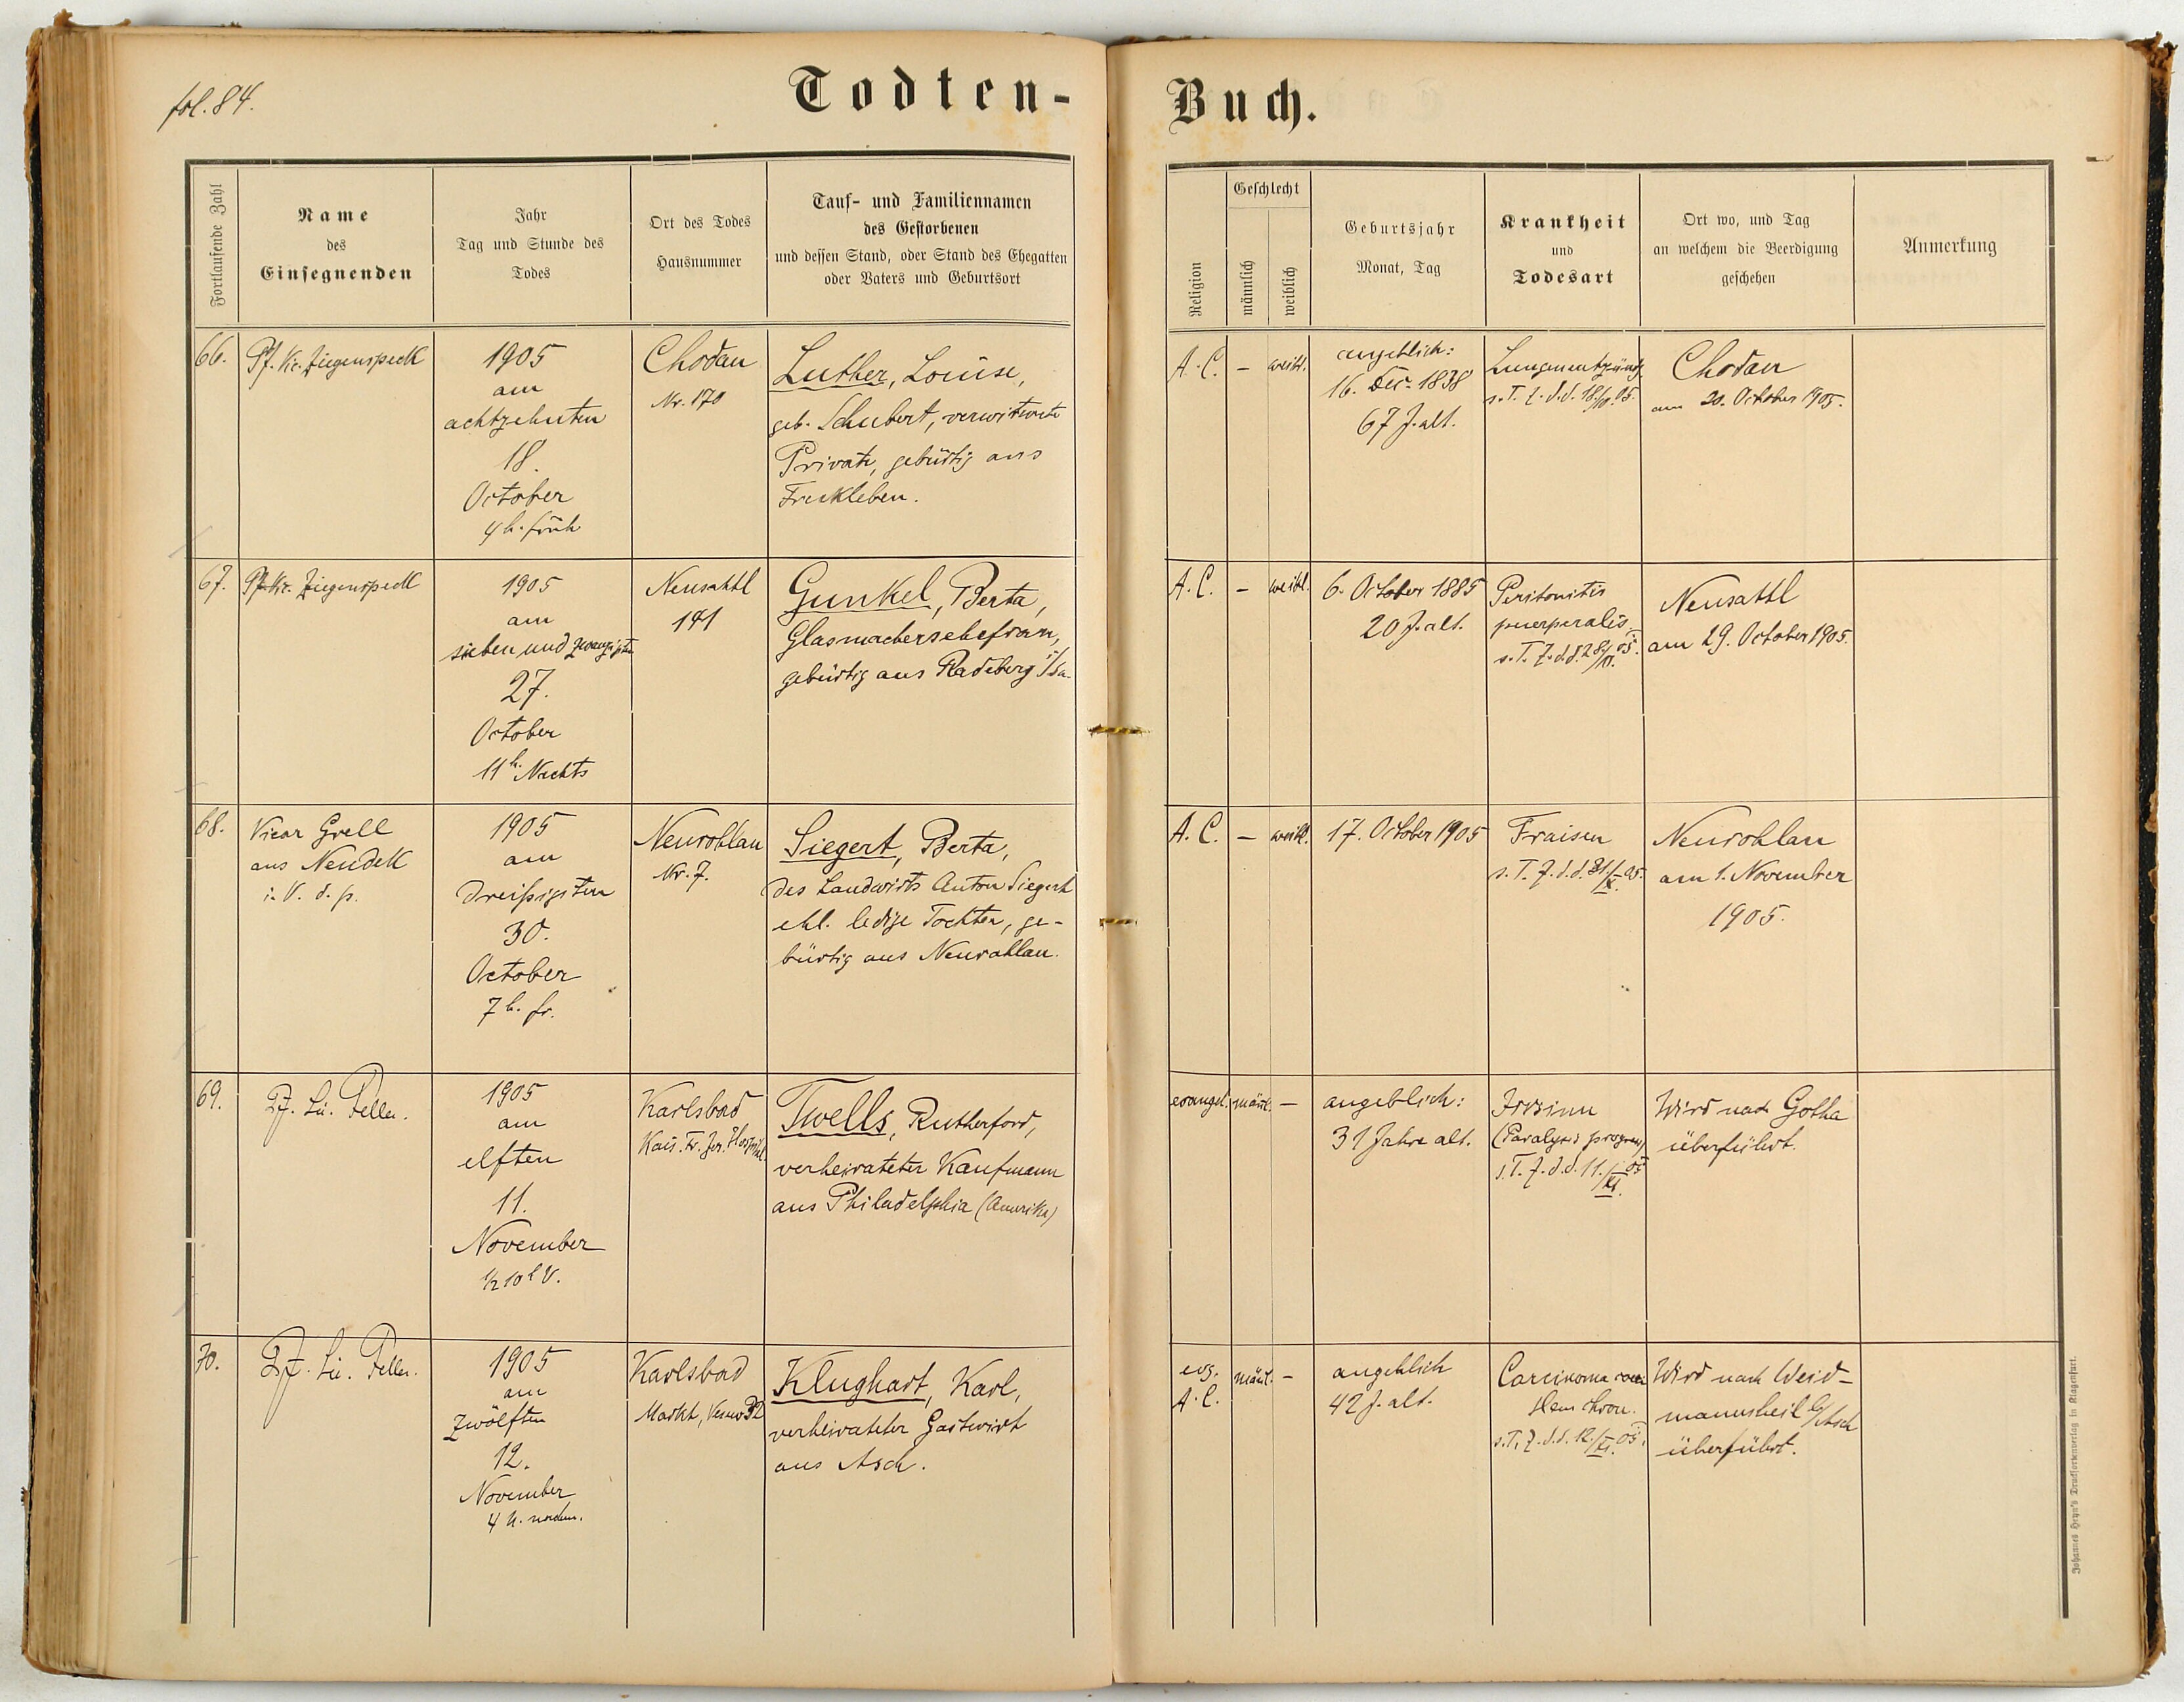 fol. 84.
Todten-
Buch.
Fortlaufende Zahl
Name
des
Einsegnenden
Jahr
Tag und Stunde des
Todes
Ort des Todes
Hausnummer
Tauf- und Familiennamen
des Gestorbenen
und dessen Stand, oder Stand des Ehegatten
oder Vaters und Geburtsort
Religion
Geschlecht
männlich
weiblich
Geburtsjahr
Monat, Tag
Krankheit
und
Todesart
Ort wo, und Tag
an welchem die Beerdigung
geschehen
Anmerkung
66.
Pf. Vic. Ziegenspeck
1905
am
achtzehnten
18.
October
4 h. früh
Chodau
Nr. 170
Luther, Louise,
geb. Schubert, verwitwete
Private, gebürtig aus
Freckleben.
A. C.
–
weibl.
angeblich:
16. Dec. 1838
67 J. alt.
Lungenentzündg.
s. T. Z. d. d. 18./10. 05.
Chodau
am 20. October 1905.
67.
Pf. Vic. Ziegenspeck
1905
am
sieben und zwanzigsten
27.
October
11 h. Nachts
Neusattl
191
Gunkel, Berta,
Glasmachersehefrau,
gebürtig aus Radeberg i/Sa.
A. C.
–
weibl.
6. October 1885
20 J. alt.
Peritonitis
puerperalis
s. T. Z. d. d. 28/ 05.
Neusattl
am 29. October 1905.
68.
Vicar Grell
aus Neudek
i. V. d. p.
1905
am
dreißigsten
30.
October
7 h. fr.
Neurohlau
Nr. 7.
Siegert, Berta,
des Landwirts Anton Siegert
ehl. ledige Tochter, ge-
bürtig aus Neurohlau.
A. C.
–
weibl.
17. October 1905
Fraisen
s. T. Z. d. d. 31./X. 05.
Neurohlau
am 1. November
1905.
69.
Pf. Lic. Feller.
1905
am
elften
11.
November
½ 10 h V.
Karlsbad
Kais. Fr. Jos. Hospital.
Twells, Rutherford,
verheirateter Kaufmann
aus Philadelphia (Amerika)
evangel.
männl.
–
angeblich:
31 Jahre alt.
Irrsinn
(Paralysis progress)
s. T. Z. d. d. 11./XI. 05
Wird nach Gotha
überführt.
70.
Pf. Lic. Feller.
1905
am
zwölften
12.
November
4 h. nachm.
Karlsbad
Markt,
Klughart, Karl,
verheirateter Gastwirt
aus Asch.
evg.
A. C.
männl.
–
angeblich
42 J. alt.
Carcinoma
s. T. Z. d. d. 12./XI. 05.
Wird nach Weid-
mannsheil b/Asch
überführt.
Johannes Heyn's Drucksortenverlag in Klagenfurt.